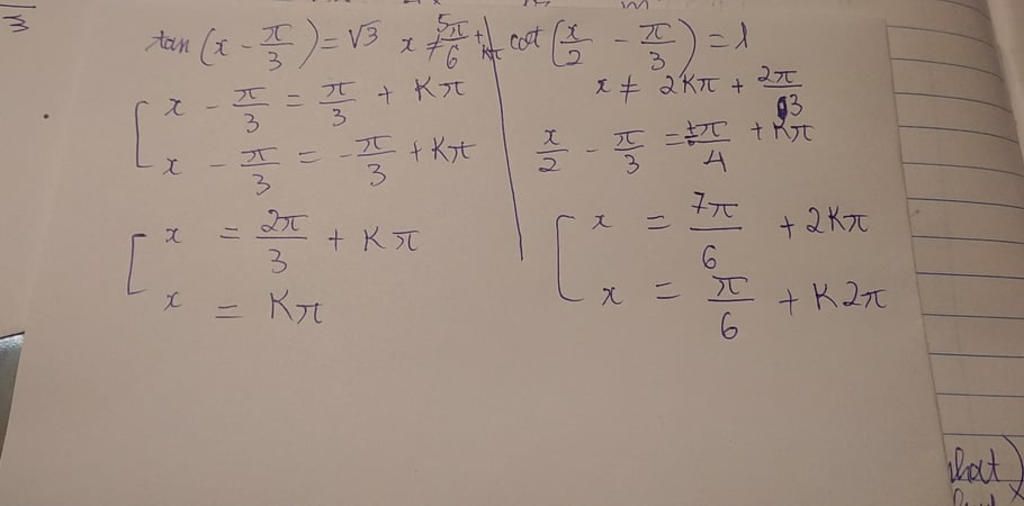 tan(x - π/3) = √3 x ≠ 5π/6 + kπ
[ x - π/3 = π/3 + Kπ
x - π/3 = -π/3 + Kπ
[ x = 2π/3 + Kπ
x = Kπ
cot(x/2 - π/3) = 1
x ≠ 2Kπ + 2π/3
x/2 - π/3 = ±π/4 + Kπ
[ x = 7π/6 + 2Kπ
x = π/6 + K2π